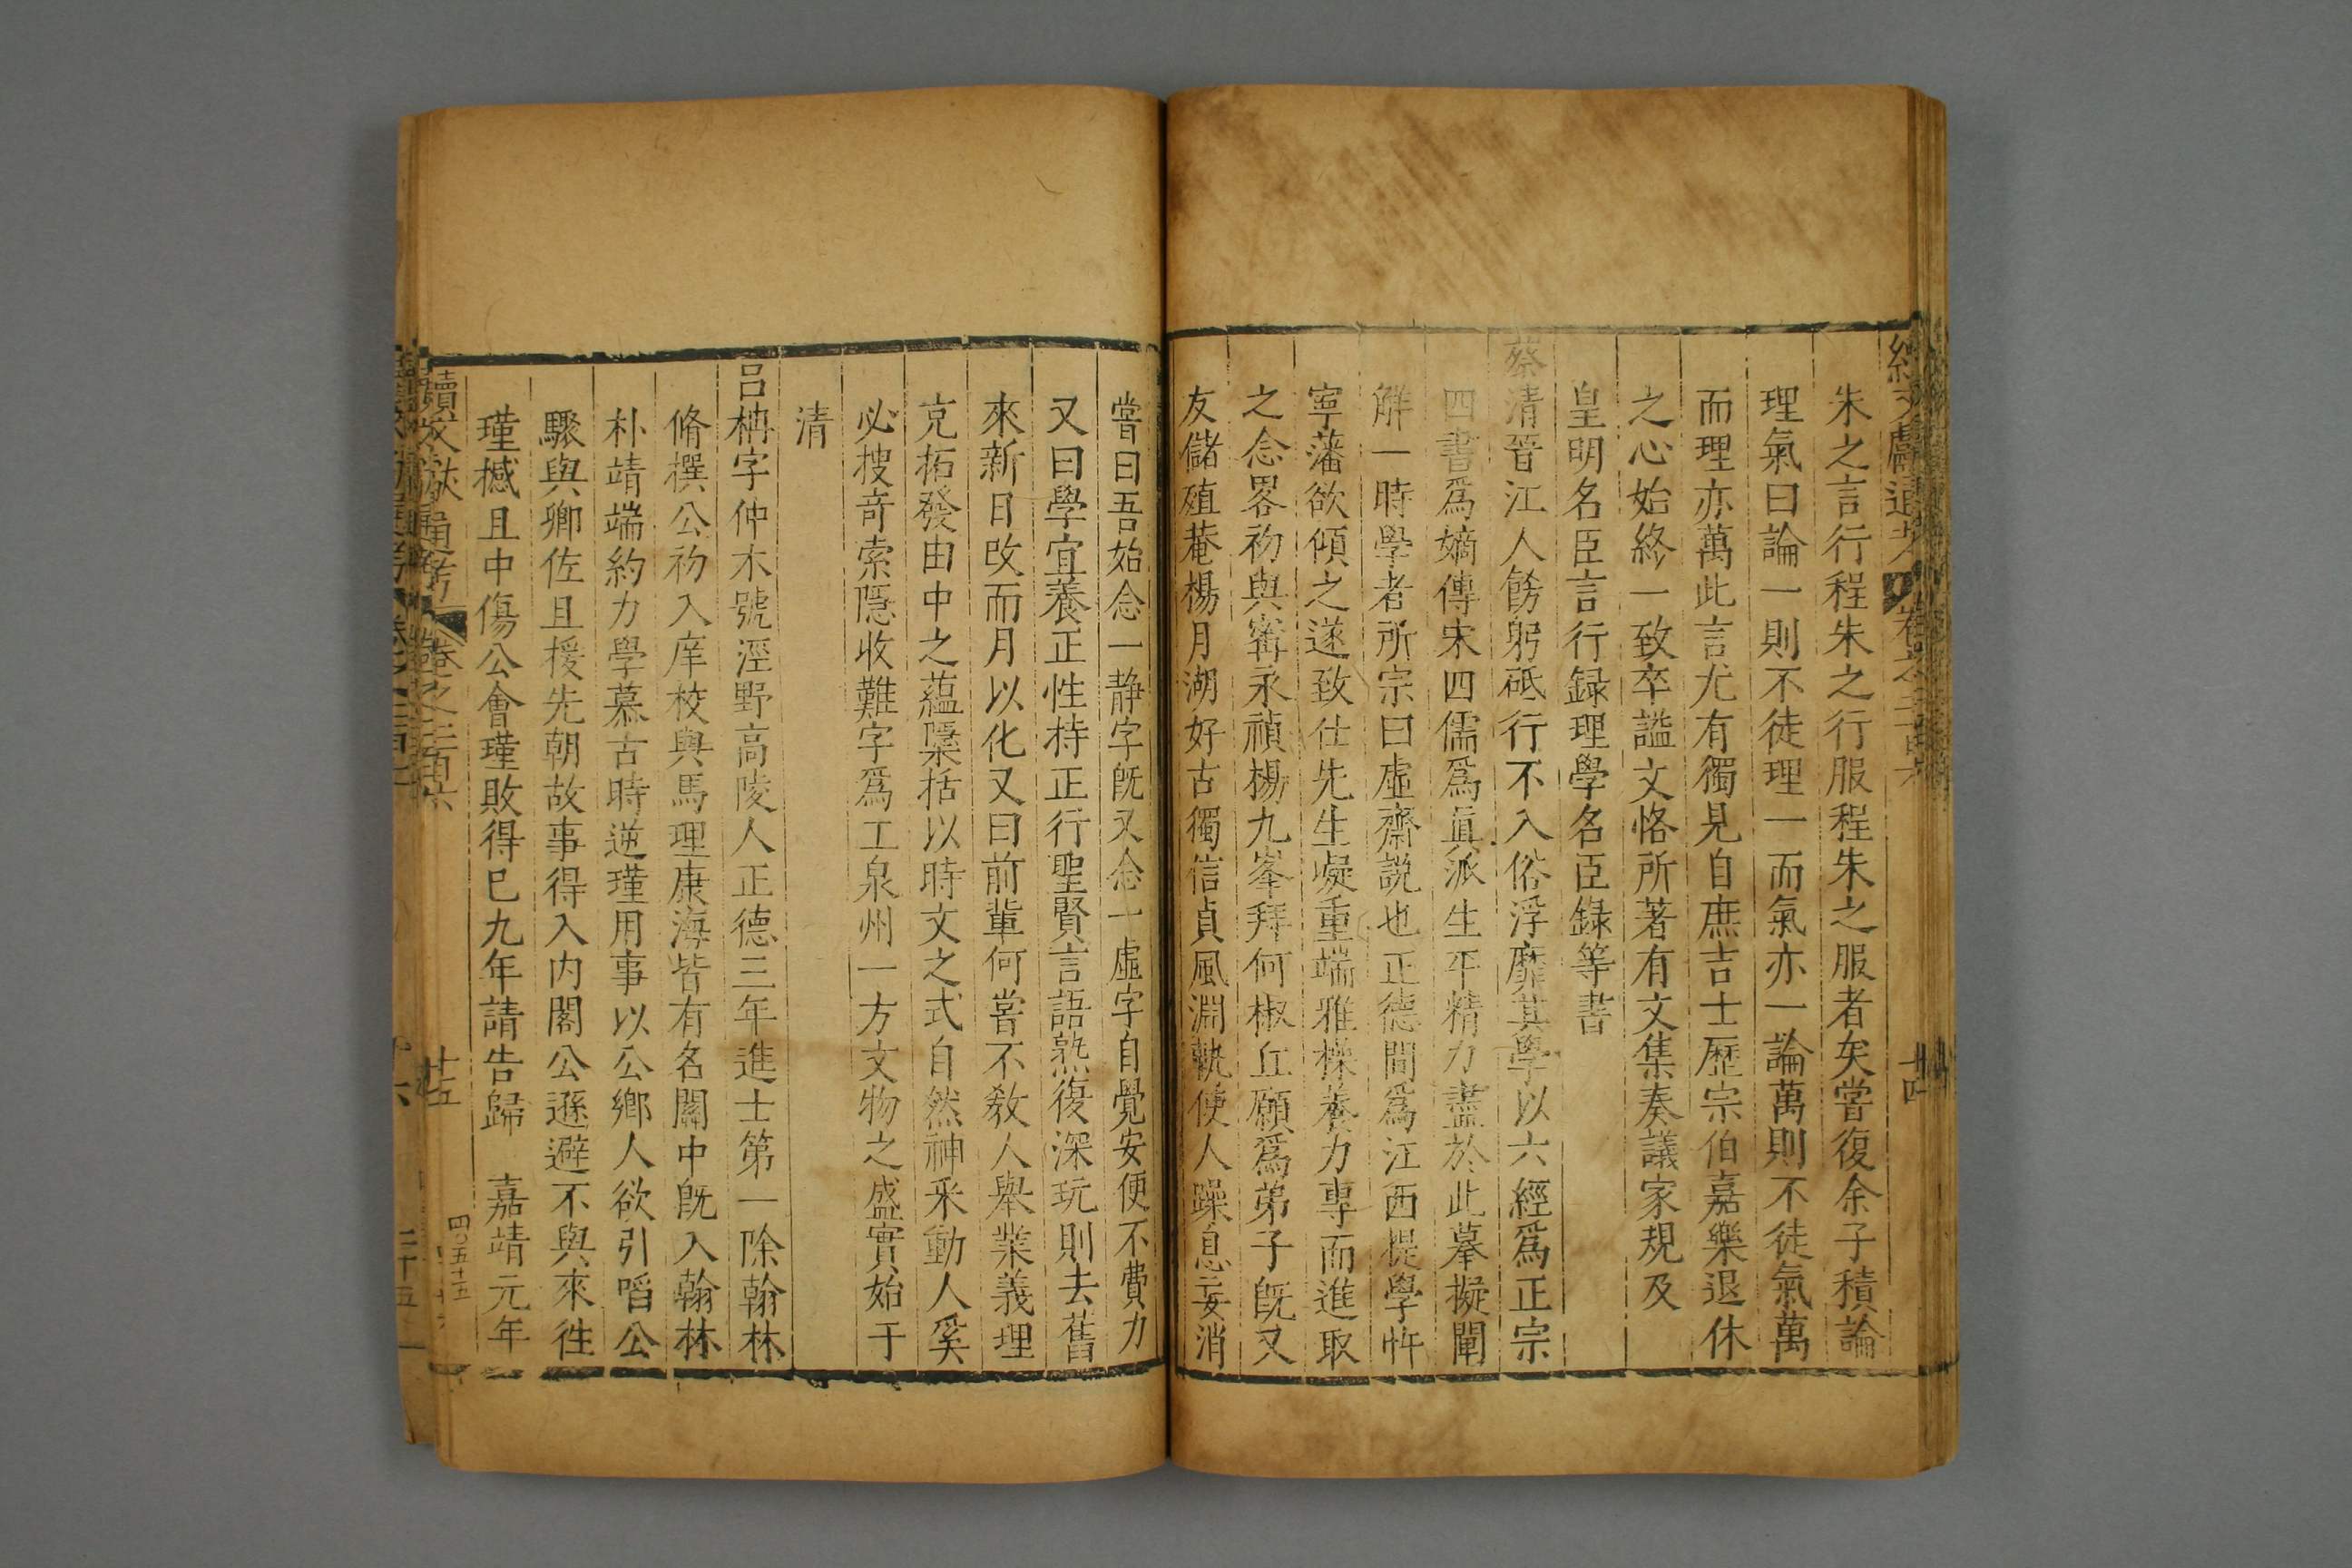 續文獻通考 卷之二百 廿四
朱之言行程朱之行服程朱之服者矣嘗復余子積論
理氣曰論一則不徒理一而氣亦一論萬則不徒氣萬
而理亦萬此言尤有獨見自庶吉士歷宗伯嘉樂退休
之心始終一致卒謚文恪所著有文集奏議家規及
皇明名臣言行録理學名臣錄等書
蔡清晉江人飭躬砥行不入俗浮靡其學以六經爲正宗
四書爲嫡傳宋四儒爲眞派生平精力盡於此摹擬闡
解一時學者所宗曰虛齋説也正德間爲江西提學忤
寧藩欲傾之遂致仕先生凝重端雅操養力專而進取
之念畧初與寗永禎楊九峯拜何椒丘願爲弟子旣又
友儲殖菴楊月湖好古獨信貞風淵軌使人躁息妄消
嘗曰吾始念一静字旣又念一虛字自覺安便不費力
又曰學宜養正性持正行聖賢言語熟復深玩則去舊
來新日改而月以化又曰前輩何嘗不敎人舉業義理
充拓發由中之蘊檃括以時文之式自然神采動人奚
必搜竒索隱收難字爲工泉州一方文物之盛實始于
清
呂柟字仲木號涇野高陵人正德三年進士第一除翰林
脩撰公初入庠校與馬理康海皆有名關中旣入翰林
朴靖端約力學慕古時逆瑾用事以公鄉人欲引啗公
驟與卿佐且援先朝故事得入内閣公遜避不與來徃
瑾憾且中傷公會瑾敗得已九年請告歸 嘉靖元年
續文獻通考 卷之二百 廿五
四〇五十五